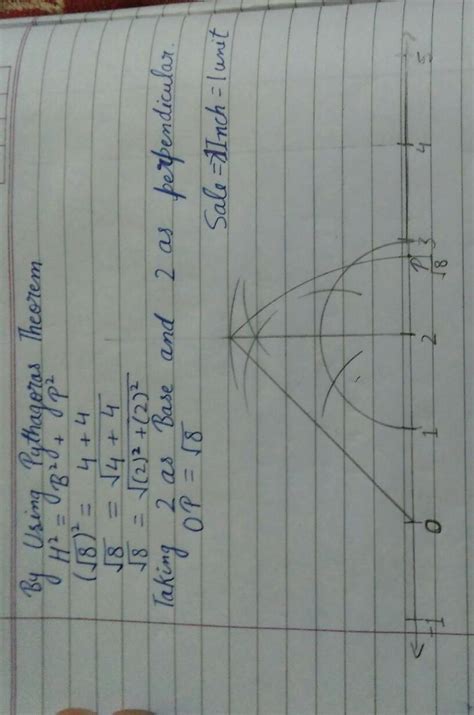 By Using Pythagoras Theorem
H² = B² + P²
(√8)² = 4 + 4
√8 = √4 + 4
√8 = √(2)² + (2)²
Taking 2 as Base and 2 as perpendicular.
OP = √8
Sale = 1Inch = 1 unit
-1 0 1 2 P 3 4 5
√8